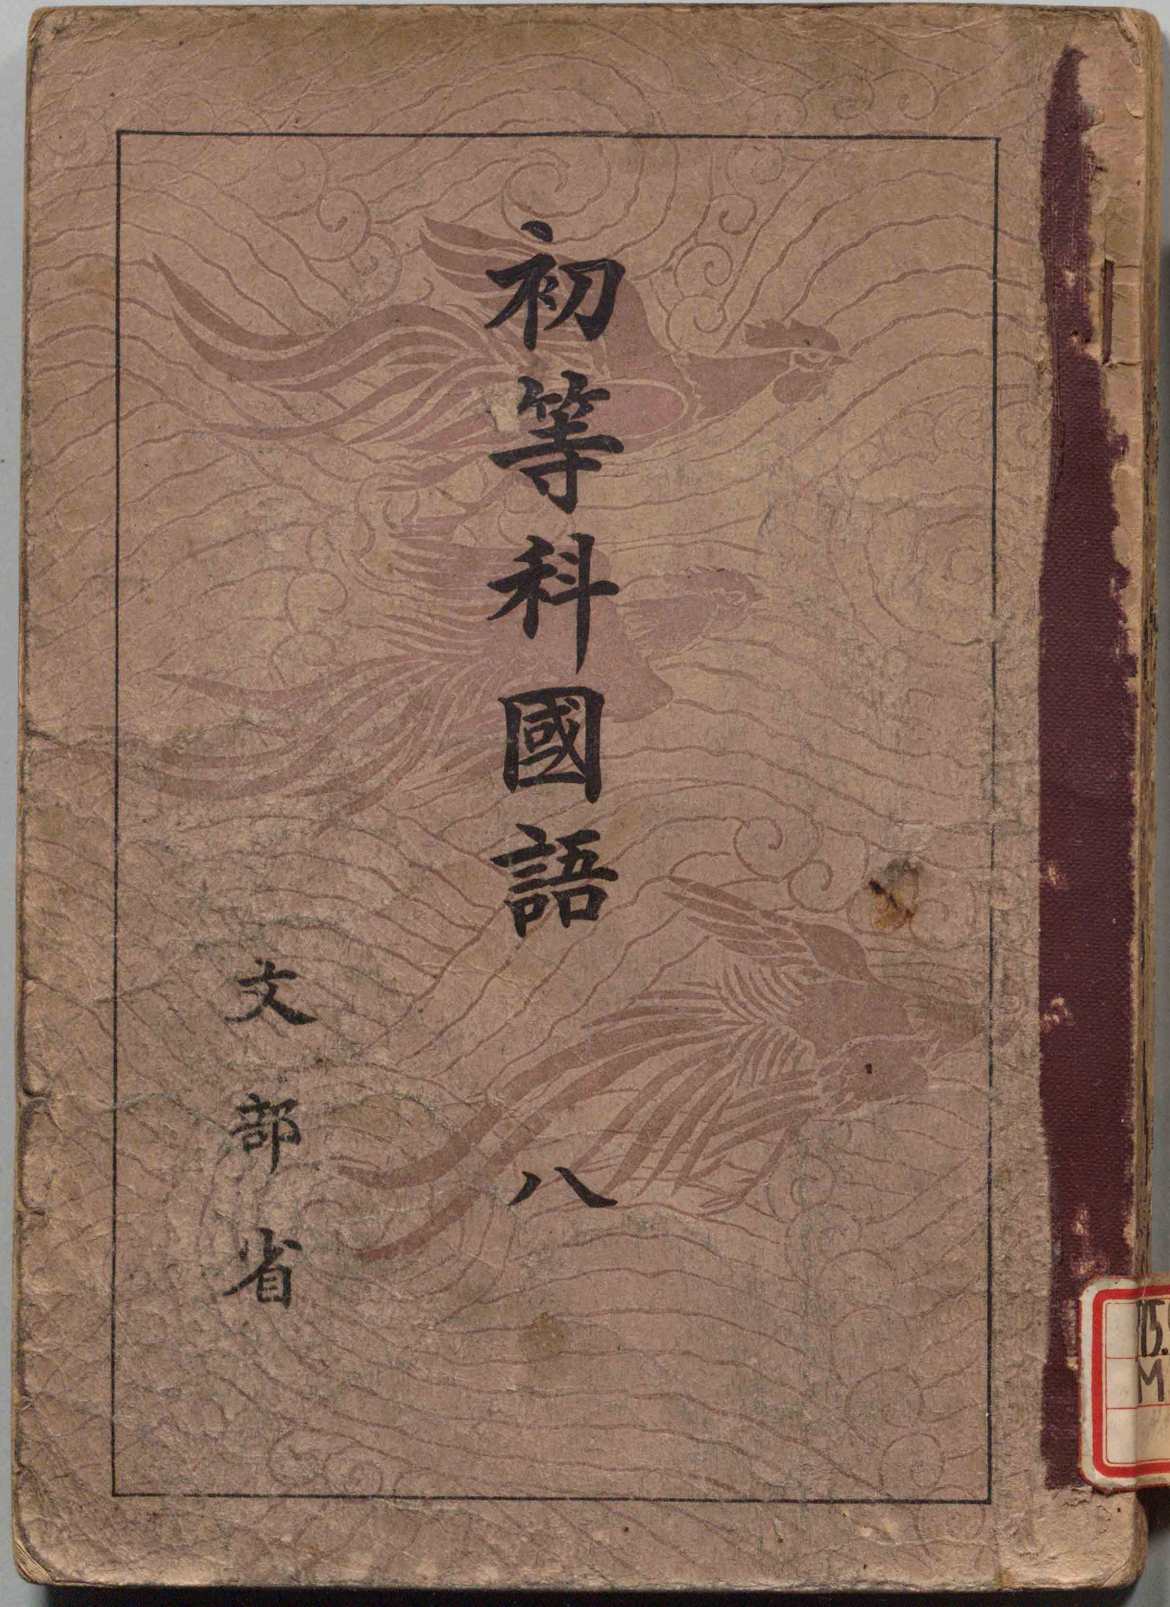 初等科國語 八
文部省
M